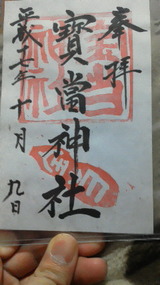 奉拝
寳當神社
平成二十七年十一月
九日